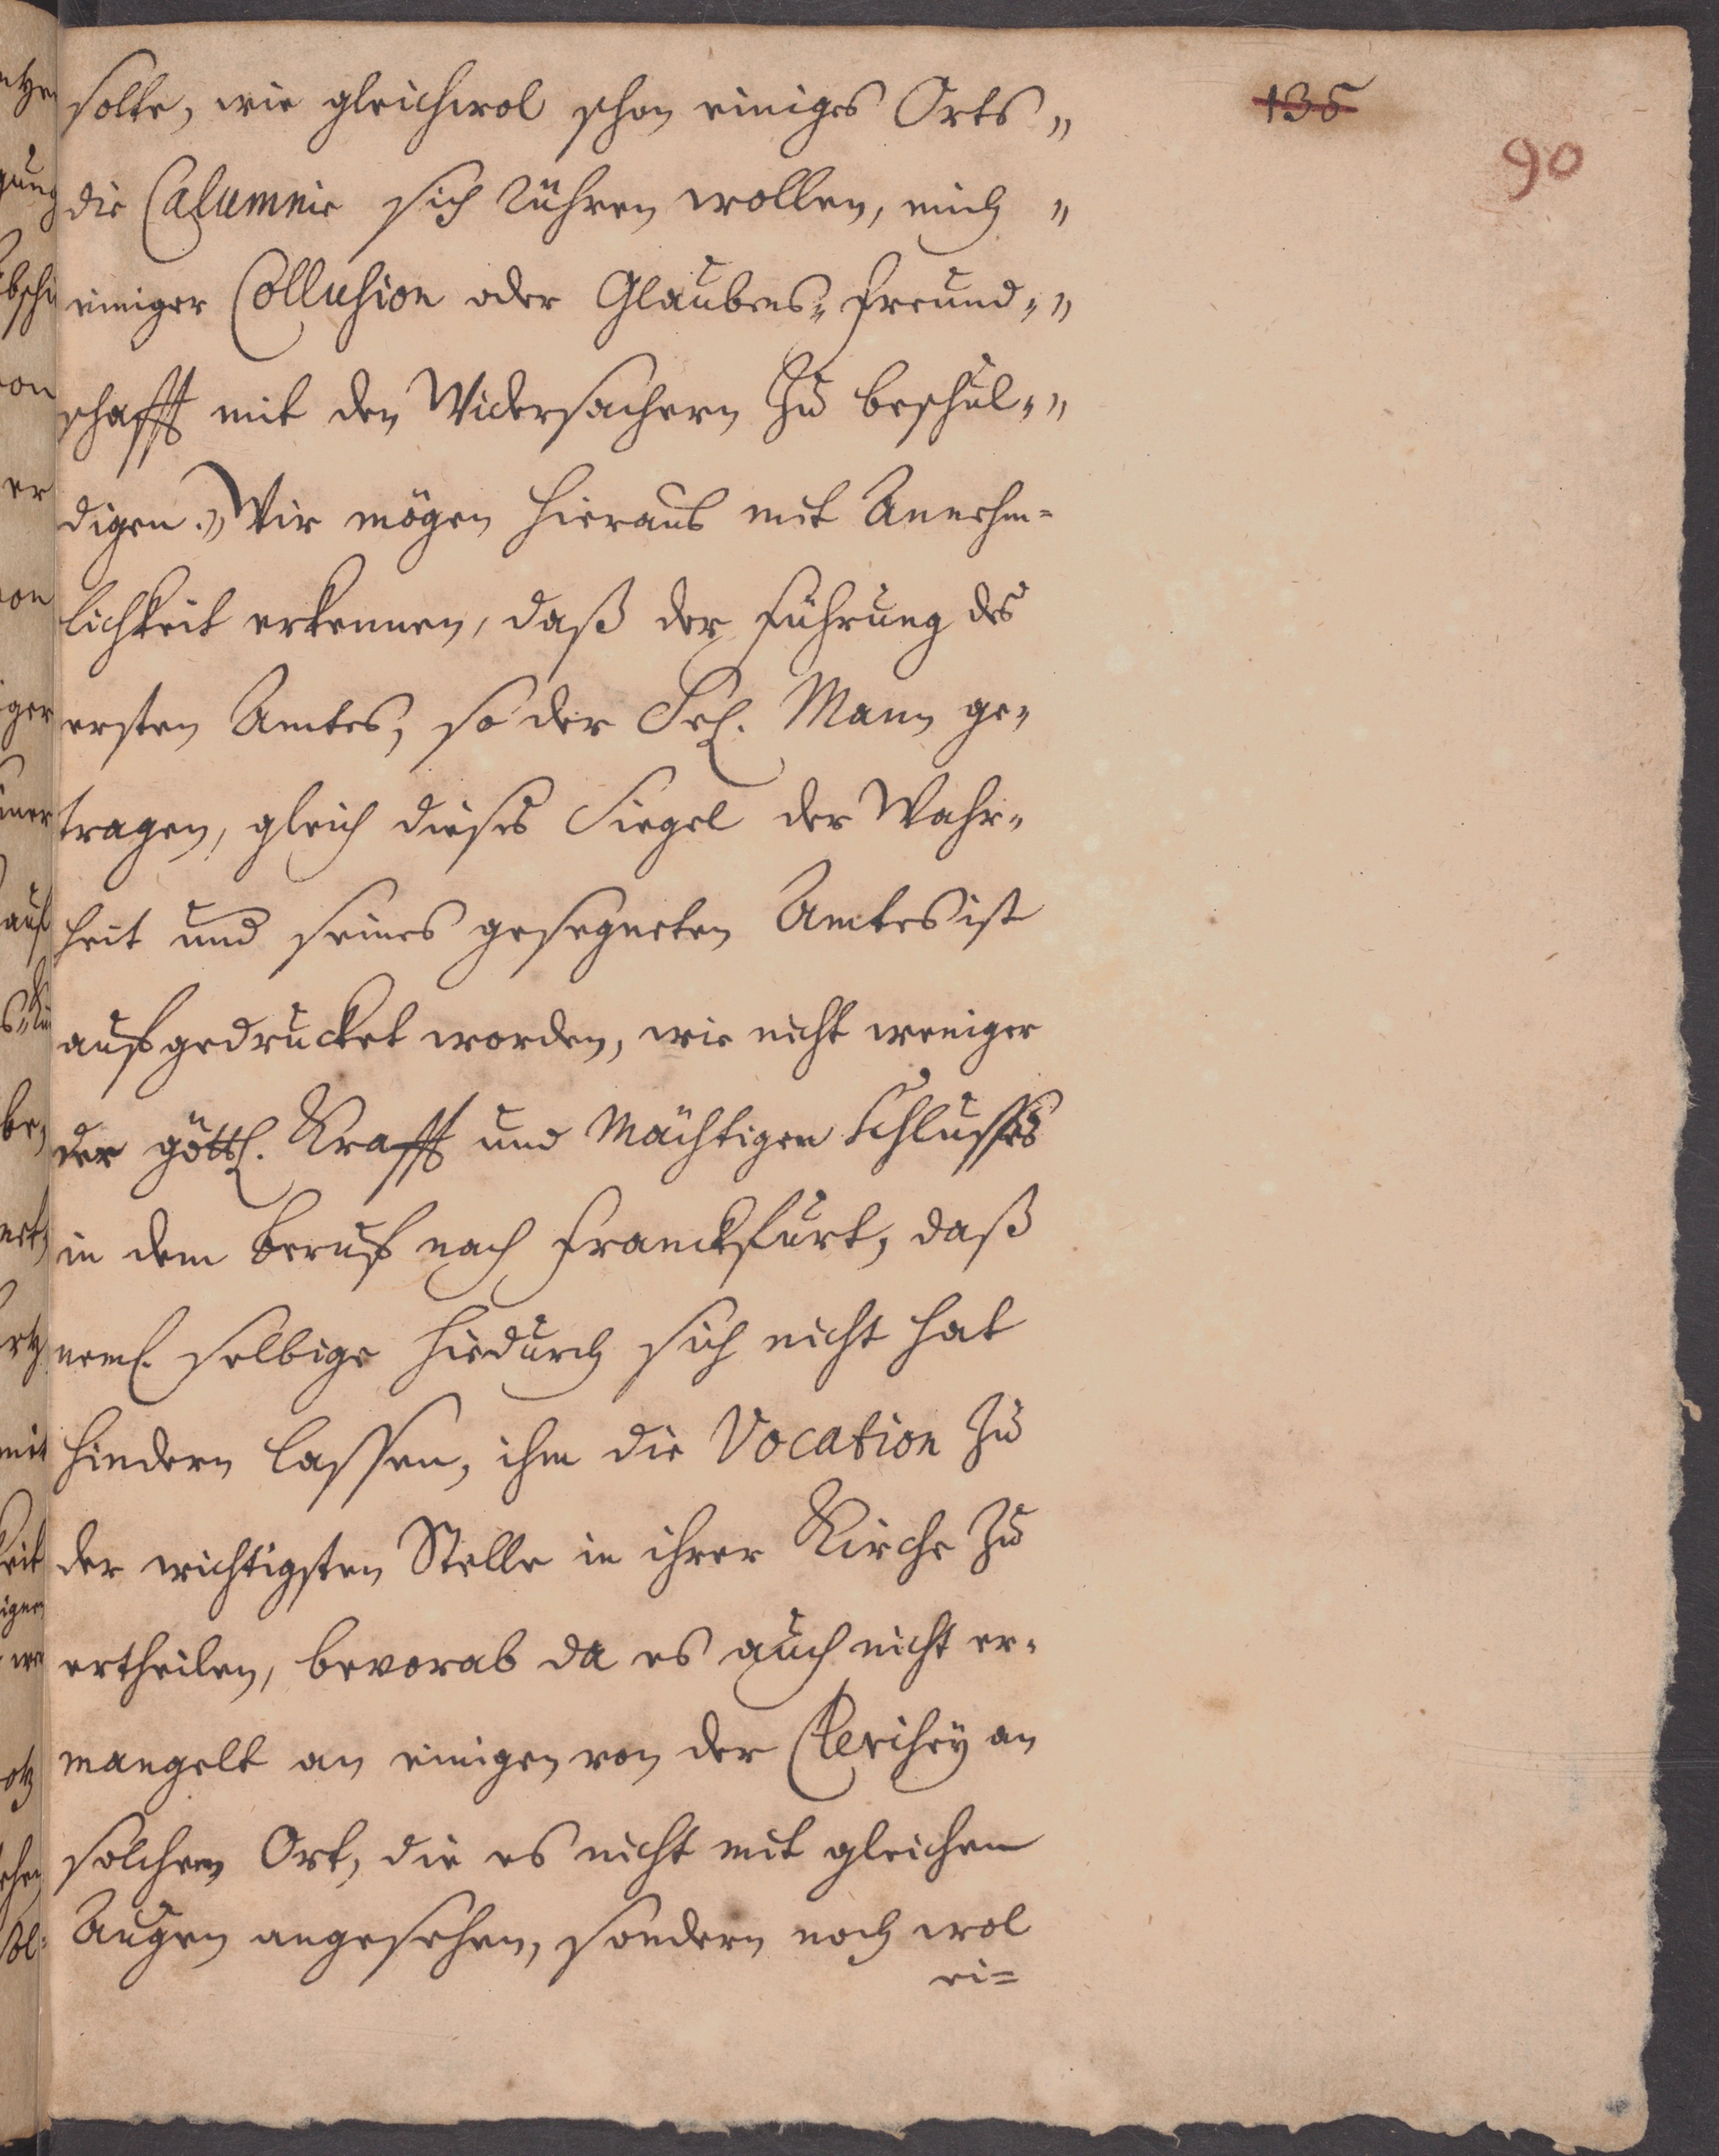 135
90
solte, wie gleichwol schon einiges Orts „
die Calumnie sich rühren wollen, mich „
einiger Collusion oder Glaubens-Freund- „
schafft mit den Widersachern zu beschul- „
digen.„ Wir mögen hieraus mit Annehm-
lichkeit erkennen, daß der Führung des
ersten Amtes, so der Sel. Mann ge-
tragen, gleich dieses Siegel der Wahr-
heit und seines gesegneten Amtes ist
aufgedrucket worden, wie nicht weniger
der göttl. Krafft und Mächtigen Schlusses
in dem Beruf nach Franckfurt, daß
neml. selbige hiedurch sich nicht hat
hindern lassen, ihm die Vocation zu
der wichtigsten Stelle in ihrer Kirche zu
ertheilen, bevorab da es auch nicht er-
mangelt an einigen von der Clerisey an
solchem Ort, die es nicht mit gleichem
Augen angesehen, sondern noch wol
ei=